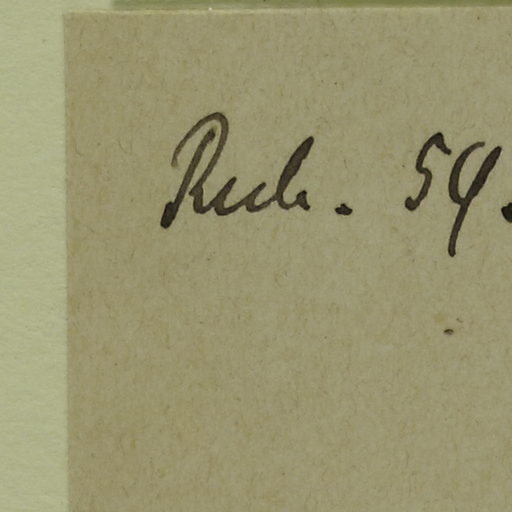 Rub. 54.